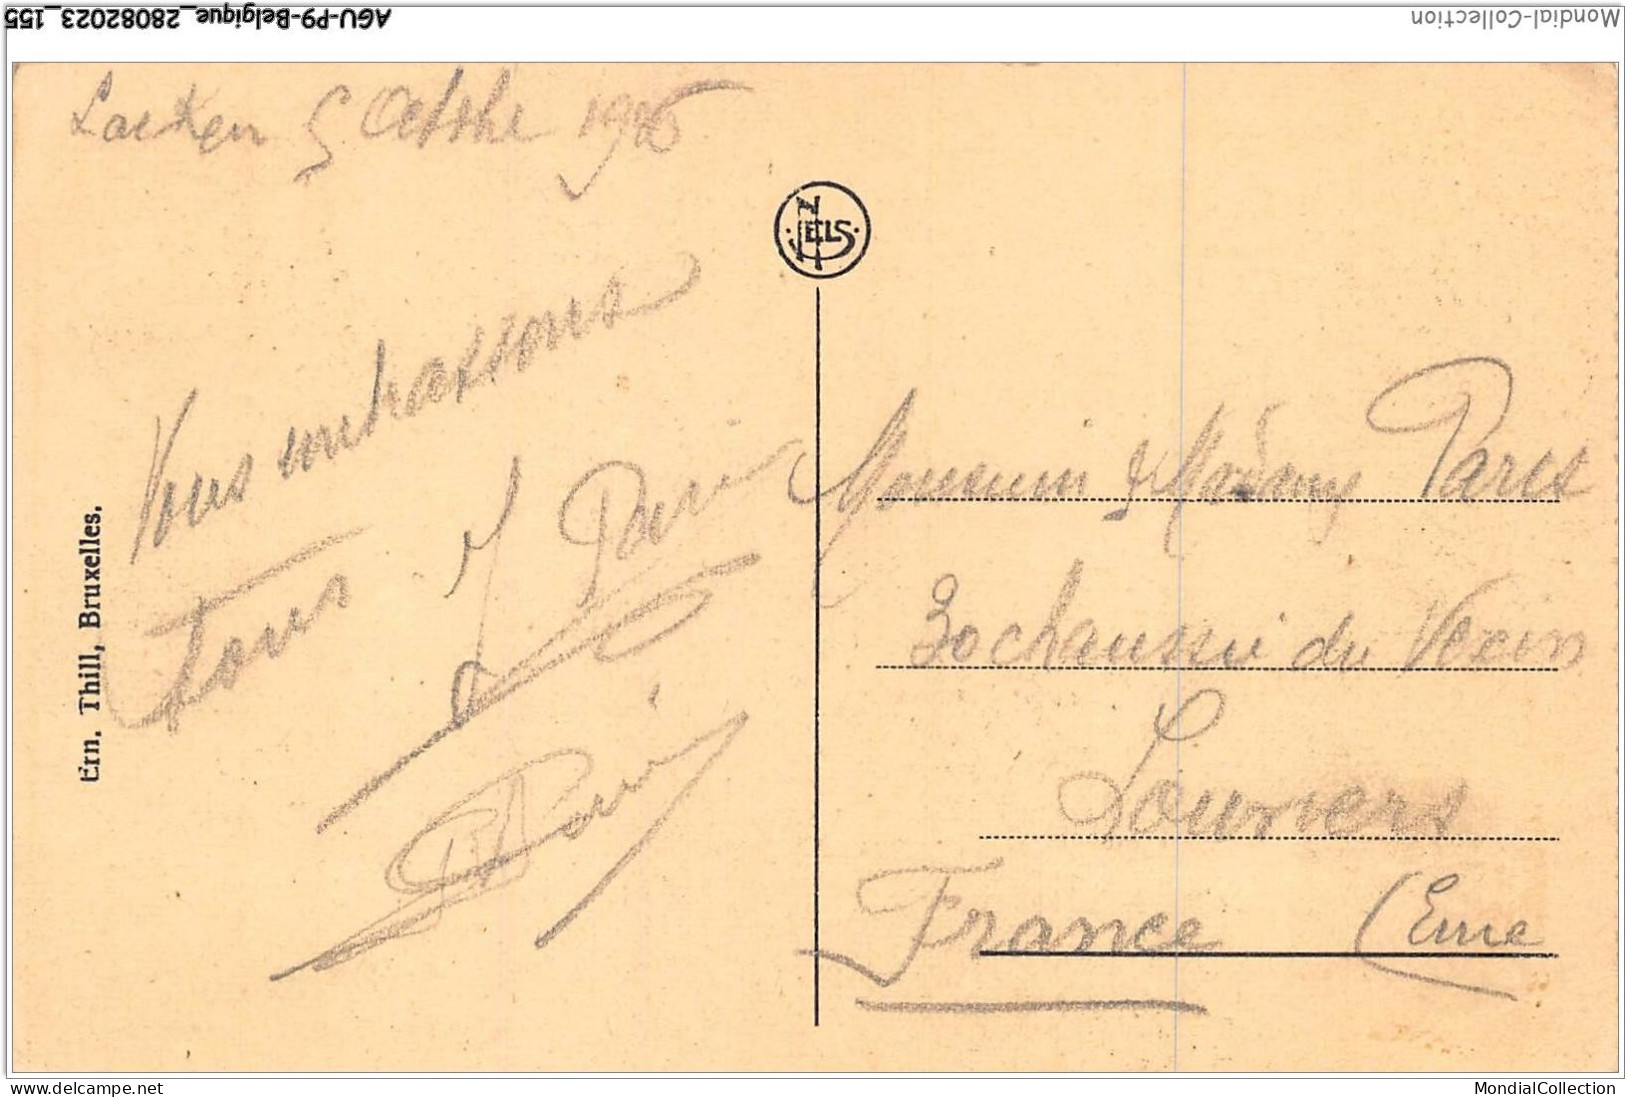 AGU-P9-Belgique_28082023_155
Mondial-Collection
Laeken 5 Octobre
NELS
Vous embrassons
Tous
Ern. Thill, Bruxelles.
Monsieur & Madame Paris
30 chaussée du Vexin
Louviers
France (Eure
© delcampe.net
MondialCollection